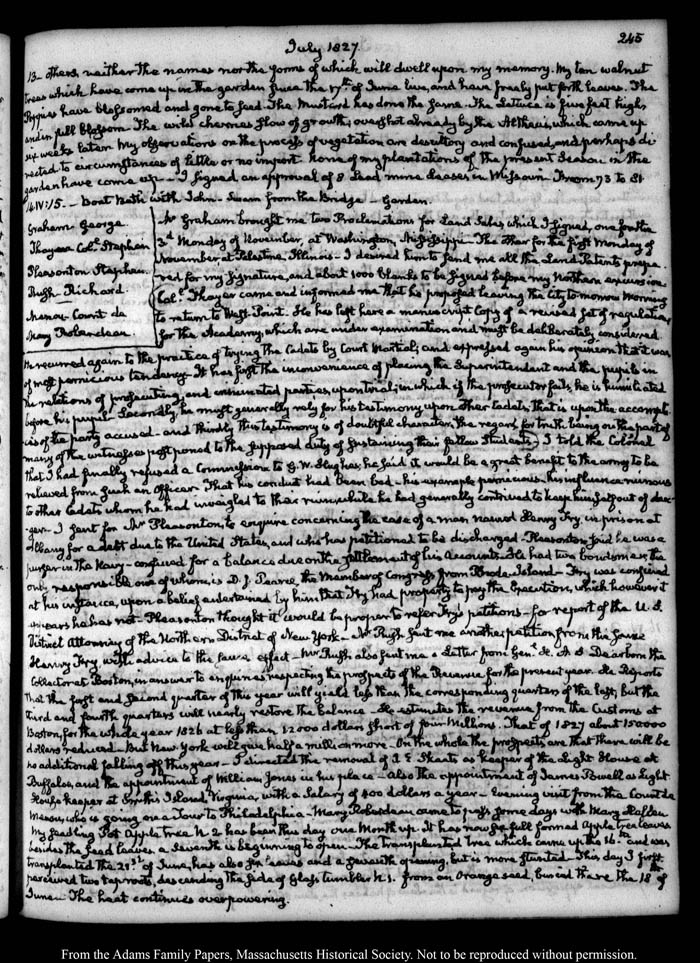 July 1827.
245
13- others, neither the names nor the forms of which will dwell upon my memory. My ten walnut
trees which have come up in the garden since the 17th of June live, and have freely put forth leaves. The
Poppies have blossomed and gone to seed. The Mustard has done the same. The Lettuce is five feet high,
and in full blossom. The wild cherries slow of growth, overshot already by the Altheas, which came up
six weeks later. My observations on the process of vegetation are desultory and confused, and perhaps di-
rected to circumstances of little or no import. None of my plantations of the present Season in the
garden have come up — I signed an approval of 8 Lead mine Leases in Missouri From 73 to 81
14. IV:15. — Boat Bath with John — Swam from the Bridge — Garden.
Graham George
Thayer Col. Stephen
Pleasonton Stephen
Rush Richard
Menou Count de
Mary Roberdeau
Mr Graham brought me two Proclamations for Land Sales which I signed, one for the
3d Monday of November, at Washington, Mississippi — The other for the first Monday of
November at Palestine, Illinois — I desired him to send me all the Land Patents prepa-
red for my signature, and about 1000 blanks to be signed before my Northern excursion
Col. Thayer came and informed me that he proposed leaving the City to-morrow Morning
to return to West-Point. He has left here a manuscript Copy of a revised set of regulations
for the Academy, which are under examination and must be deliberately considered
He recurred again to the practice of trying the Cadets by Court Martial; and expressed again his opinion that it was
of most pernicious tendency. It has first the inconvenience of placing the Superintendent and the pupils in
the relations of prosecuting, and accused parties, upon trial; in which if the prosecutor fails, he is humiliated
before his pupil. Secondly, he must generally rely for his testimony upon other Cadets, that is upon the accompli-
ces of the party accused — and thirdly this testimony is of doubtful character, the regard for truth being on the part of
many of the witnesses postponed to the supposed duty of sustaining their fellow Students. I told the Colonel
that I had finally refused a Commission to G. W. Hughes; he said it would be a great benefit to the army to be
relieved from such an Officer. That his conduct had been bad — his example pernicious — his influence ruinous
to other Cadets whom he had inveigled to their ruin, while he had generally contrived to keep himself out of dan-
ger. I sent for Mr Pleasonton, to enquire concerning the case of a man named Henry Fry, in prison at
Albany for a debt due to the United States, and who has petitioned to be discharged — Pleasonton said he was a
purser in the Navy — confined for a balance due on the settlement of his Accounts. He had two bondsmen, the
only responsible one of whom is D. J. Pearce, the Member of Congress from Rhode-Island — Fry was confined
at his instance, upon a belief entertained by him that Fry had property to pay the Execution, which however it
appears he has not. Pleasonton thought it would be proper to refer Fry's petitions — for report of the U.S.
District Attorney of the Northern District of New York — Mr Rush sent me another petition from the same
Henry Fry, with advice to the same effect — Mr Rush also sent me a Letter from Genl. H. A. S. Dearborn the
Collector at Boston, in answer to enquiries respecting the prospects of the Revenue for the present year. He Reports
that the first and second quarter of this year will yield less than the corresponding quarters of the last, but the
third and fourth quarters will nearly restore the balance — He estimates the revenue from the Customs at
Boston, for the whole year 1826 at less than 12000 dollars short of four Millions. That of 1827 about 150000
dollars reduced — But New York will give half a million more. On the whole the prospects are that there will be
no additional falling off this year — I directed the removal of J. E. Skaats as keeper of the Light House at
Buffaloe, and the appointment of William Jones in his place — also the appointment of James Powell as Light
House keeper at Smith's Island, Virginia, with a salary of 800 dollars a year — Evening visit from the Count de
Menou, who is going on a Tour to Philadelphia — Mary Roberdeau came to pass some days with Mary Hellen
My seedling Pot Apple tree N. 2 has been this day one Month up. It has now six full formed Apple tree leaves
besides the seed leaves, a seventh is beginning to open — The transplanted tree which came up the 16th and was
transplanted the 21st of June, has also six leaves and a seventh opening, but is more stunted — This day I first
perceived two taproots, descending the side of Glass tumbler N. 1. from an Orange seed, buried there the 18th of
June. The heat continues overpowering.
From the Adams Family Papers, Massachusetts Historical Society. Not to be reproduced without permission.